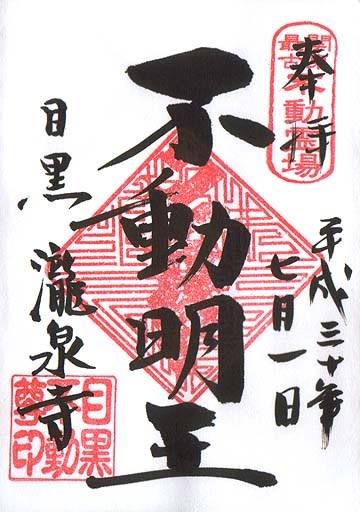 奉拝
関東最古不動霊場
平成三十年
七月一日
不動明王
目黒
瀧泉寺
目黒不動尊印